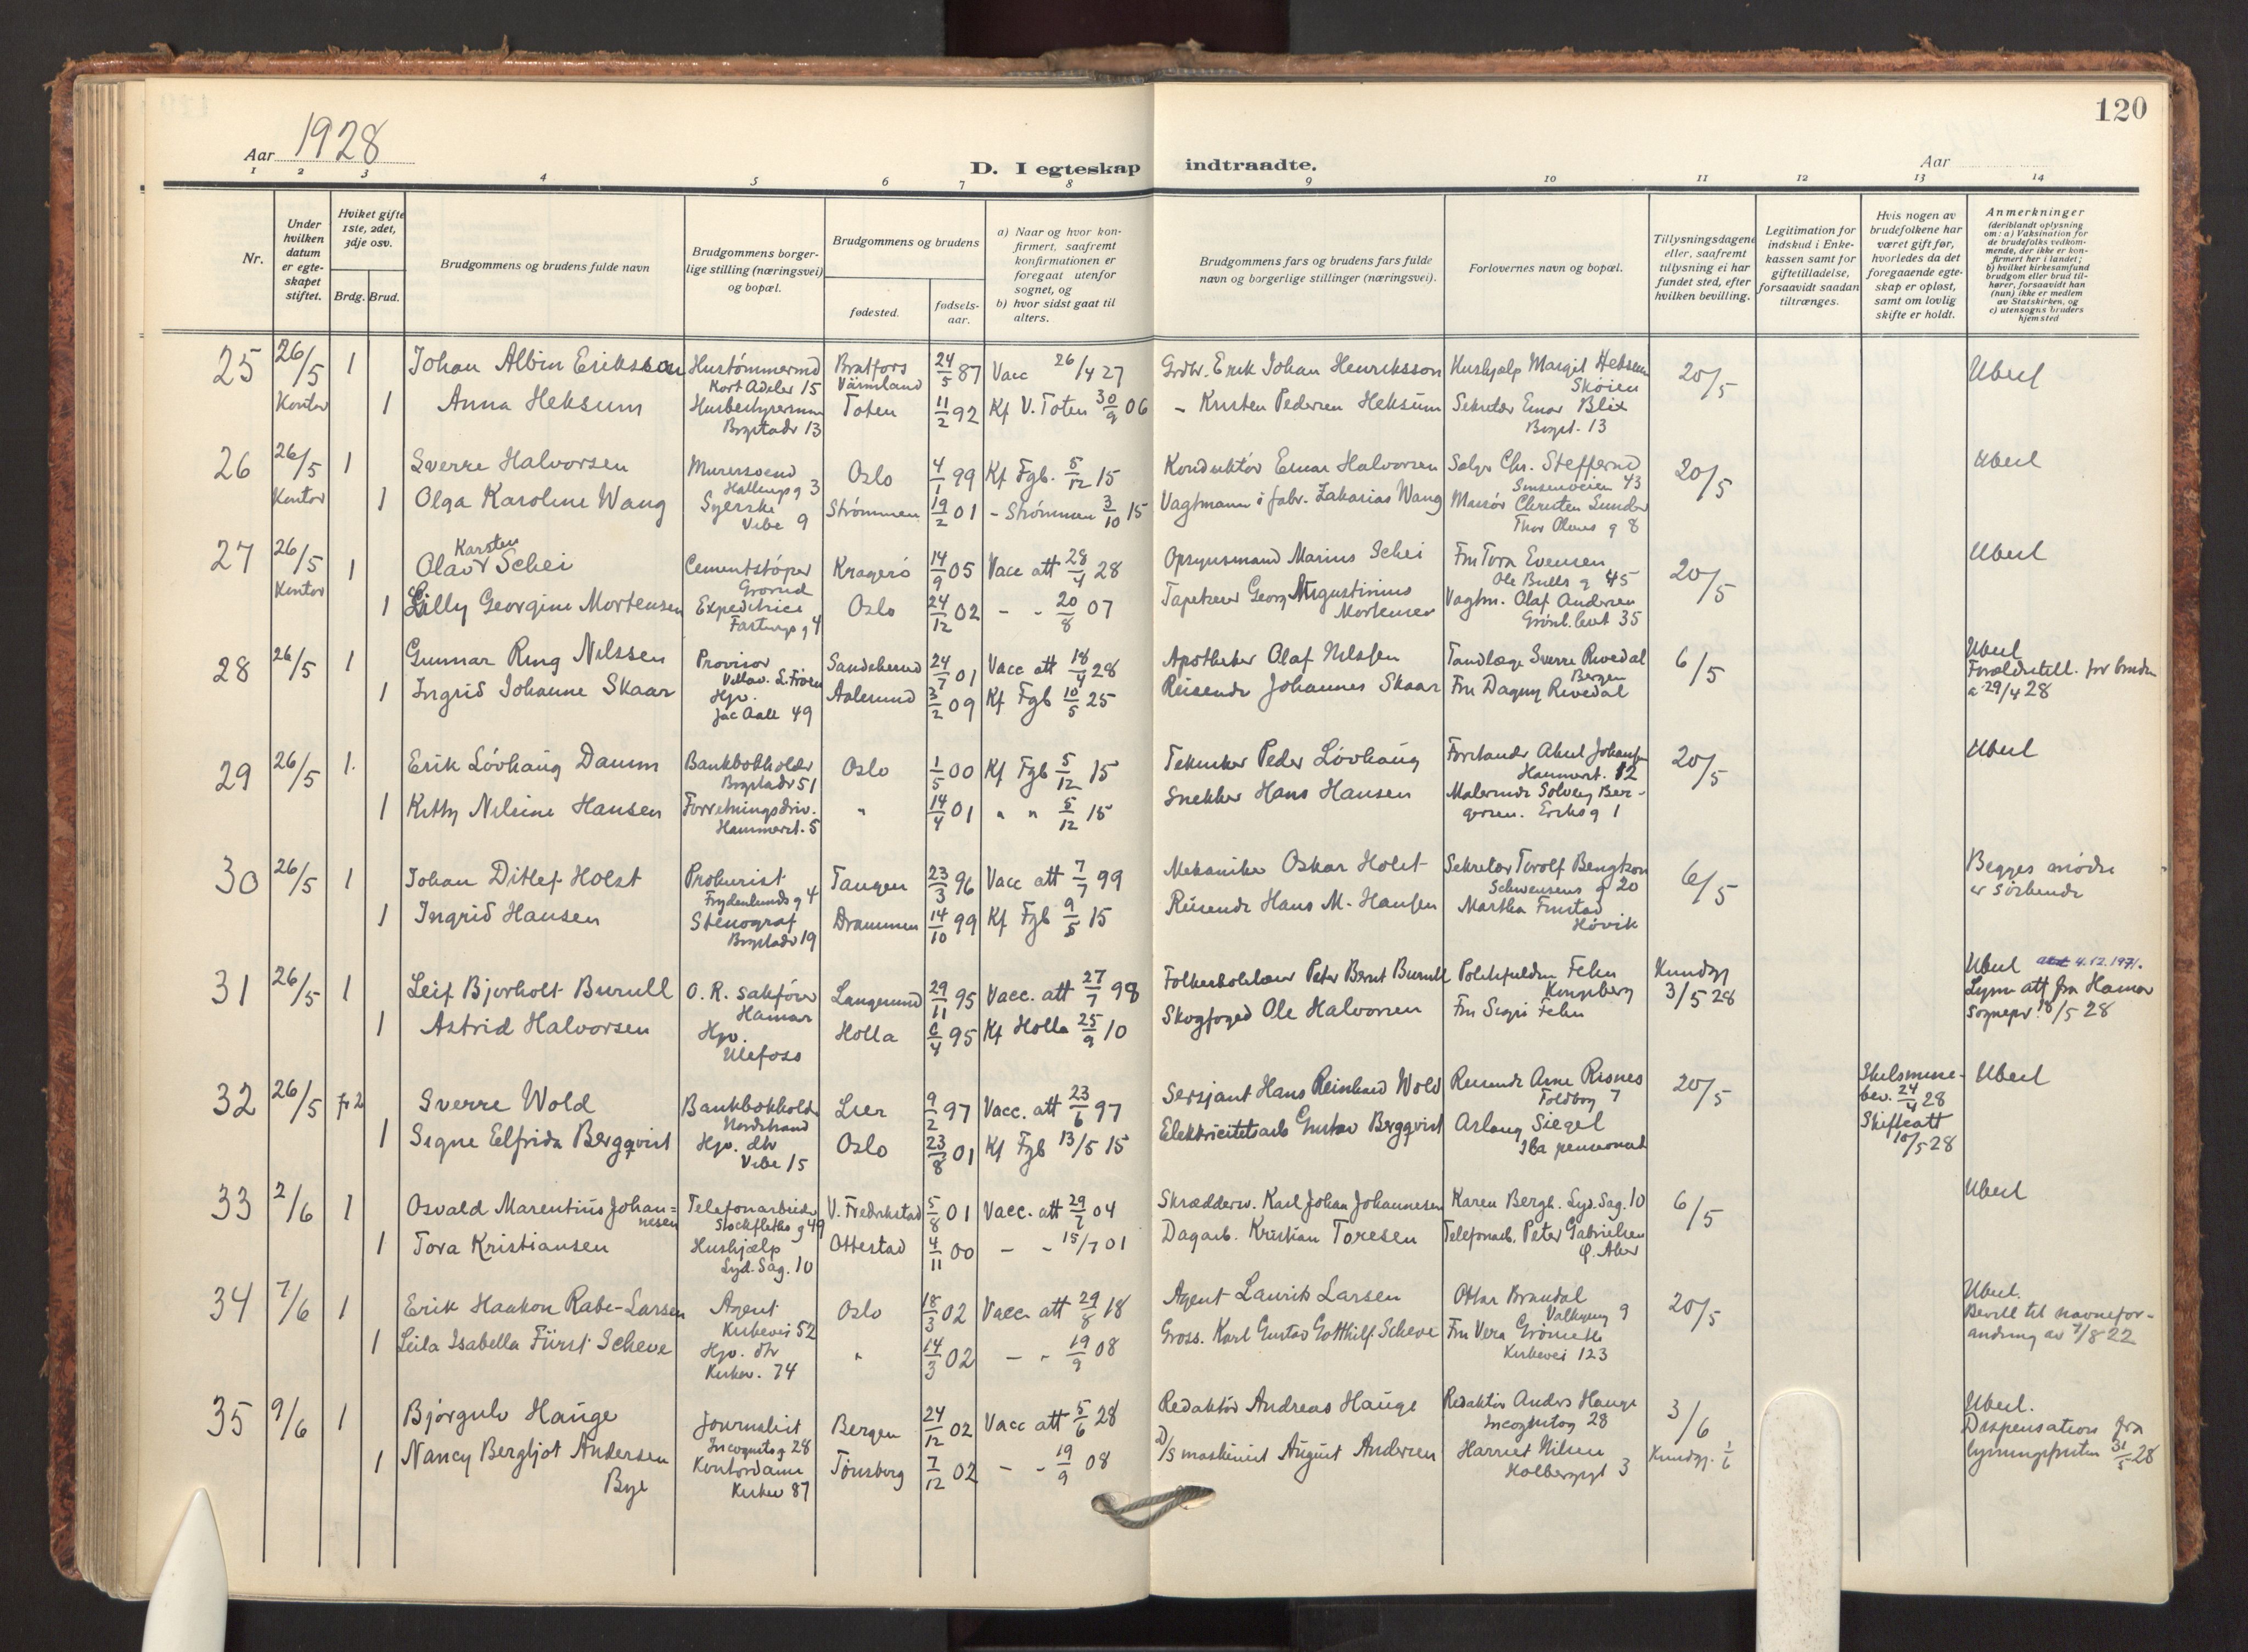 120
Aar 1928
D. I egteskap indtraadte.
Aar
1 2 3 4 5 6 7 8 9 10 11 12 13 14
Nr.
Under hvilken datum er egteskapet stiftet.
Hviket gifte 1ste, 2det, 3dje osv.
Brdg. Brud.
Brudgommens og brudens fulde navn
Brudgommens borgerlige stilling (næringsvei) og bopæl.
Brudgommens og brudens
fødested.
fødselsaar.
a) Naar og hvor konfirmert, saafremt konfirmationen er foregaat utenfor sognet, og
b) hvor sidst gaat til alters.
Brudgommens fars og brudens fars fulde navn og borgerlige stillinger (næringsvei).
Forlovernes navn og bopæl.
Tillysningsdagene eller, saafremt tillysning ei har fundet sted, efter hvilken bevilling.
Legitimation for indskud i Enkekassen samt for giftetilladelse, forsaavidt saadan tiltrænges.
Hvis nogen av brudefolkene har været gift før, hvorledes da det foregaaende egteskap er opløst, samt om lovlig skifte er holdt.
Anmerkninger (deriblandt oplysning om: a) Vaksination for de brudefolks vedkommende, der ikke er konfirmert her i landet; b) hvilket kirkesamfund brudgom eller brud tilhører, forsaavidt han (hun) ikke er medlem av Statskirken, og c) utensogns bruders hjemsted
25 26/5 1 Johan Albin Eriksson Hustømmermd Kort Adeler 15 Bratfors Värmland 24/5 87 Vacc 26/4 27 Grdbr. Erik Johan Henriksson Hushjælp Margit Heksum Skøien 20/5 Ubesl
Kontor 1 Anna Heksum Husbestyrerinne Bogstadv 13 Toten 11/2 92 Kf V. Toten 30/9 06 - Kristen Pedersen Heksum Sekretær Einar Blix Bogst. 13
26 26/5 1 Sverre Halvorsen Murersvend Hallings g 3 Oslo 4/1 99 Kf Fgb. 5/12 15 Konduktør Einar Halvorsen Chr. Steffens 43 20/5 Ubesl
Kontor 1 Olga Karoline Wang Syerske Vibe 9 Strømmen 19/2 01 - Strømmen 3/10 15 Vagtmann i fabr. Zakarias Wang Massør Christen Sunder Thor Olsens g 8
27 26/5 1 Olav Karsten Schei Cementstøper Grorud Kragerö 14/9 05 Vacc att 28/4 28 Opsynsmand Marius Schei Fru Tora Evensen Ole Bulls g 45 20/5 Ubesl
Kontor 1 Lilly Georgine Mortensen Expeditrice Fastings g 4 Oslo 24/12 02 - - 20/8 07 Tapetserer Georg Augustinius Mortensen Vagtm. Olaf Andersen Grønl. leret 35
28 26/5 1 Gunnar Ring Nilssen Provisor Sandeherred 24/7 01 Vacc att 18/4 28 Apotheker Olaf Nilssen Tandlæge Sverre Revedal Bergen 6/5 Ubesl
1 Ingrid Johanne Skaar Hjv. Jac Aall 49 Aalesund 3/2 09 Kf Fgb 10/5 25 Reisende Johannes Skaar Fru Dagny Revedal
Forældretill. for bruden a 29/4 28
29 26/5 1. Erik Lövhaug Damm Bankbokholder Bogstadv 51 Oslo 1/5 00 Kf Fgb 5/12 15 Tekniker Peder Lövhaug Forstander Aksel Johansen Hammerst. 12 20/5 Ubesl
1 Kitty Nilsine Hansen Forretningsdriv. Hammerst. 5 " 14/4 01 " " 5/12 15 Snekker Hans Hansen Malerinde Solveig Bergersen. Eriks g 1
30 26/5 1 Johan Ditlef Holst Prokurist Frydenlunds g 4 Tangen 23/3 96 Vacc att 7/7 99 Mekaniker Oskar Holst Sekretær Torolf Bengtson Schwensens g 20 6/5 Begges mødre er søskende
1 Ingrid Hansen Stenograf Bogstadv 19 Drammen 14/10 99 Kf Fgb 9/5 15 Reisende Hans M. Hansen Martha Høvik
31 26/5 1 Leif Bjorholt Burull O. R. sakfører Hamar Langesund 29/11 95 Vacc. att 27/7 98 Folkeskolelærer Peter Bernt Burull Politifuldm. Felin Kongsberg Kundgj 3/5 28 Ubesl att 4.12.1971.
1 Astrid Halvorsen Hjv. Ulefoss Holla 6/4 95 Kf Holla 25/9 10 Skogfoged Ole Halvorsen Fru Sigri Felin
Lysn. att fra Hamar Sognepr. 18/5 28
32 26/5 fr 2 Sverre Wold Bankbokholder Nordstrand Lier 9/2 97 Vacc. att 23/6 97 Sersjant Hans Reinhard Wold Reisende Arne Risnes 7 20/5 Skilsmissebev. 24/4 28 Skifteatt 10/5 28 Ubesl
1 Signe Elfrida Bergqvist Hjv. dtr Vibe 15 Oslo 23/8 01 Kf Fgb 13/5 15 Elektricitetsarb Gustav Bergqvist Aslaug Siegel pensionat
33 2/6 1 Osvald Marentius Johannesen Telefonarbeider Stockfleths g 49 V. Fredrikstad 5/8 01 Vacc. att 29/7 04 Skrædderm. Karl Johan Johannesen Karen Bergh. Syd. Sag. 10 6/5 Ubesl
1 Tora Kristiansen Hushjælp Syd. Sag. 10 Ottestad 4/11 00 - - 15/7 01 Dagarb. Kristian Toresen Telefonarb. Peter Gabrielsen Ø. Aker
34 7/6 1 Erik Haakon Rabe-Larsen Agent Kirkevei 52 Oslo 18/3 02 Vacc. att 29/8 18 Agent Laurits Larsen Ottar Brandal Valkyrieg 9 20/5 Ubesl.
1 Leila Isabella Fürst Scheve Hjv. dtr Kirkev. 74 " 14/3 02 - - 19/9 08 Gross. Karl Gustav Gotthilf Scheve Fru Vera Kirkevei 123
Bevill til navneforandring av 7/8 22
35 9/6 1 Bjørgulv Hauge Journalist Incognito g 28 Bergen 24/12 02 Vacc att 5/6 28 Redaktør Andreas Hauge Redaktør Anders Hauge Incognitog 28 3/6 Ubesl.
1 Nancy Bergljot Andersen Bye Kontordame Kirkev 87 Tønsberg 7/12 02 - - 19/9 08 D/S maskinist August Andersen Harriet Nilsen Holbergsgt 3 Kundgj. 1/6
Dispensation fra lysningsfristen 31/5 28